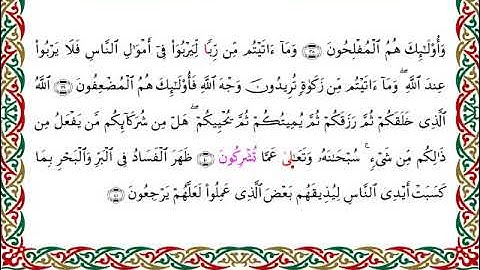 وَأُوْلَٰٓئِكَ هُمُ ٱلْمُفْلِحُونَ ٣٨ وَمَآ ءَاتَيْتُم مِّن رِّبًا لِّيَرْبُوَا۟ فِىٓ أَمْوَٰلِ ٱلنَّاسِ فَلَا يَرْبُوا۟
عِندَ ٱللَّهِ ۖ وَمَآ ءَاتَيْتُم مِّن زَكَوٰةٍ تُرِيدُونَ وَجْهَ ٱللَّهِ فَأُوْلَٰٓئِكَ هُمُ ٱلْمُضْعِفُونَ ٣٩ ٱللَّهُ
ٱلَّذِى خَلَقَكُمْ ثُمَّ رَزَقَكُمْ ثُمَّ يُمِيتُكُمْ ثُمَّ يُحْيِيكُمْ ۖ هَلْ مِن شُرَكَآئِكُم مَّن يَفْعَلُ مِن
ذَٰلِكُم مِّن شَىْءٍ ۚ سُبْحَٰنَهُۥ وَتَعَٰلَىٰ عَمَّا تُشْرِكُونَ ٤٠ ظَهَرَ ٱلْفَسَادُ فِى ٱلْبَرِّ وَٱلْبَحْرِ بِمَا
كَسَبَتْ أَيْدِى ٱلنَّاسِ لِيُذِيقَهُم بَعْضَ ٱلَّذِى عَمِلُوا۟ لَعَلَّهُمْ يَرْجِعُونَ ٤١